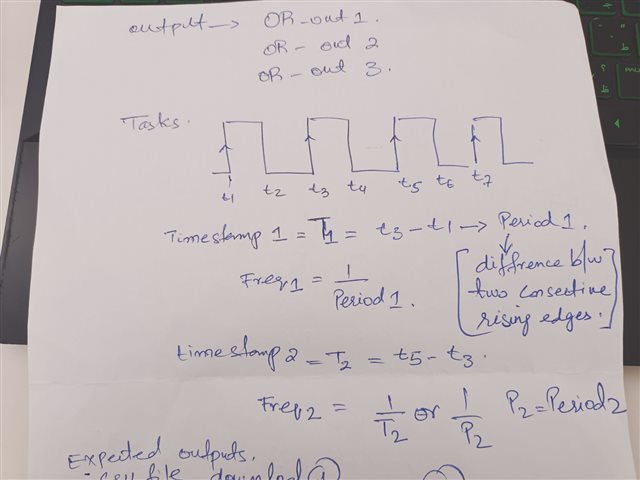 output → OR-out 1.
OR - out 2
OR - out 3.
Tasks.
t1 t2 t3 t4 t5 t6 t7
Timestamp 1 = T1 = t3 - t1 → Period 1.
[diffrence b/w
two consective
rising edges.]
Freq1 = 1/Period 1.
timestamp 2 = T2 = t5 - t3.
Freq2 = 1/T2 or 1/P2 P2 = Period 2
Expected outputs.
csv file download ①